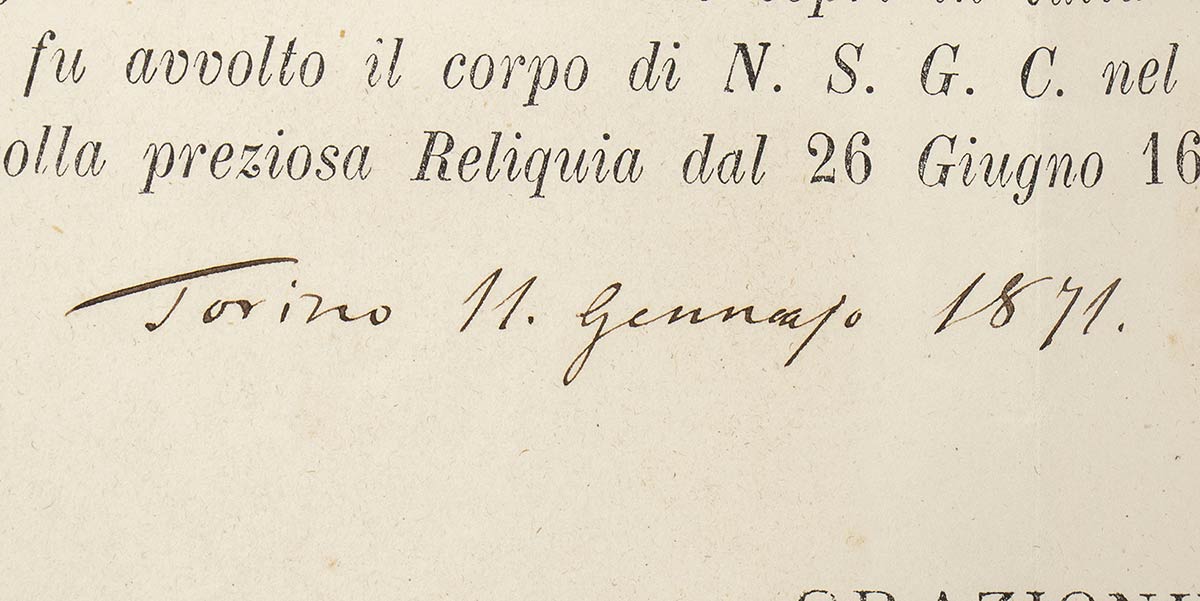 fu avvolto il corpo di N. S. G. C. nel
olla preziosa Reliquia dal 26 Giugno 16
Torino 11. Gennajo 1871.